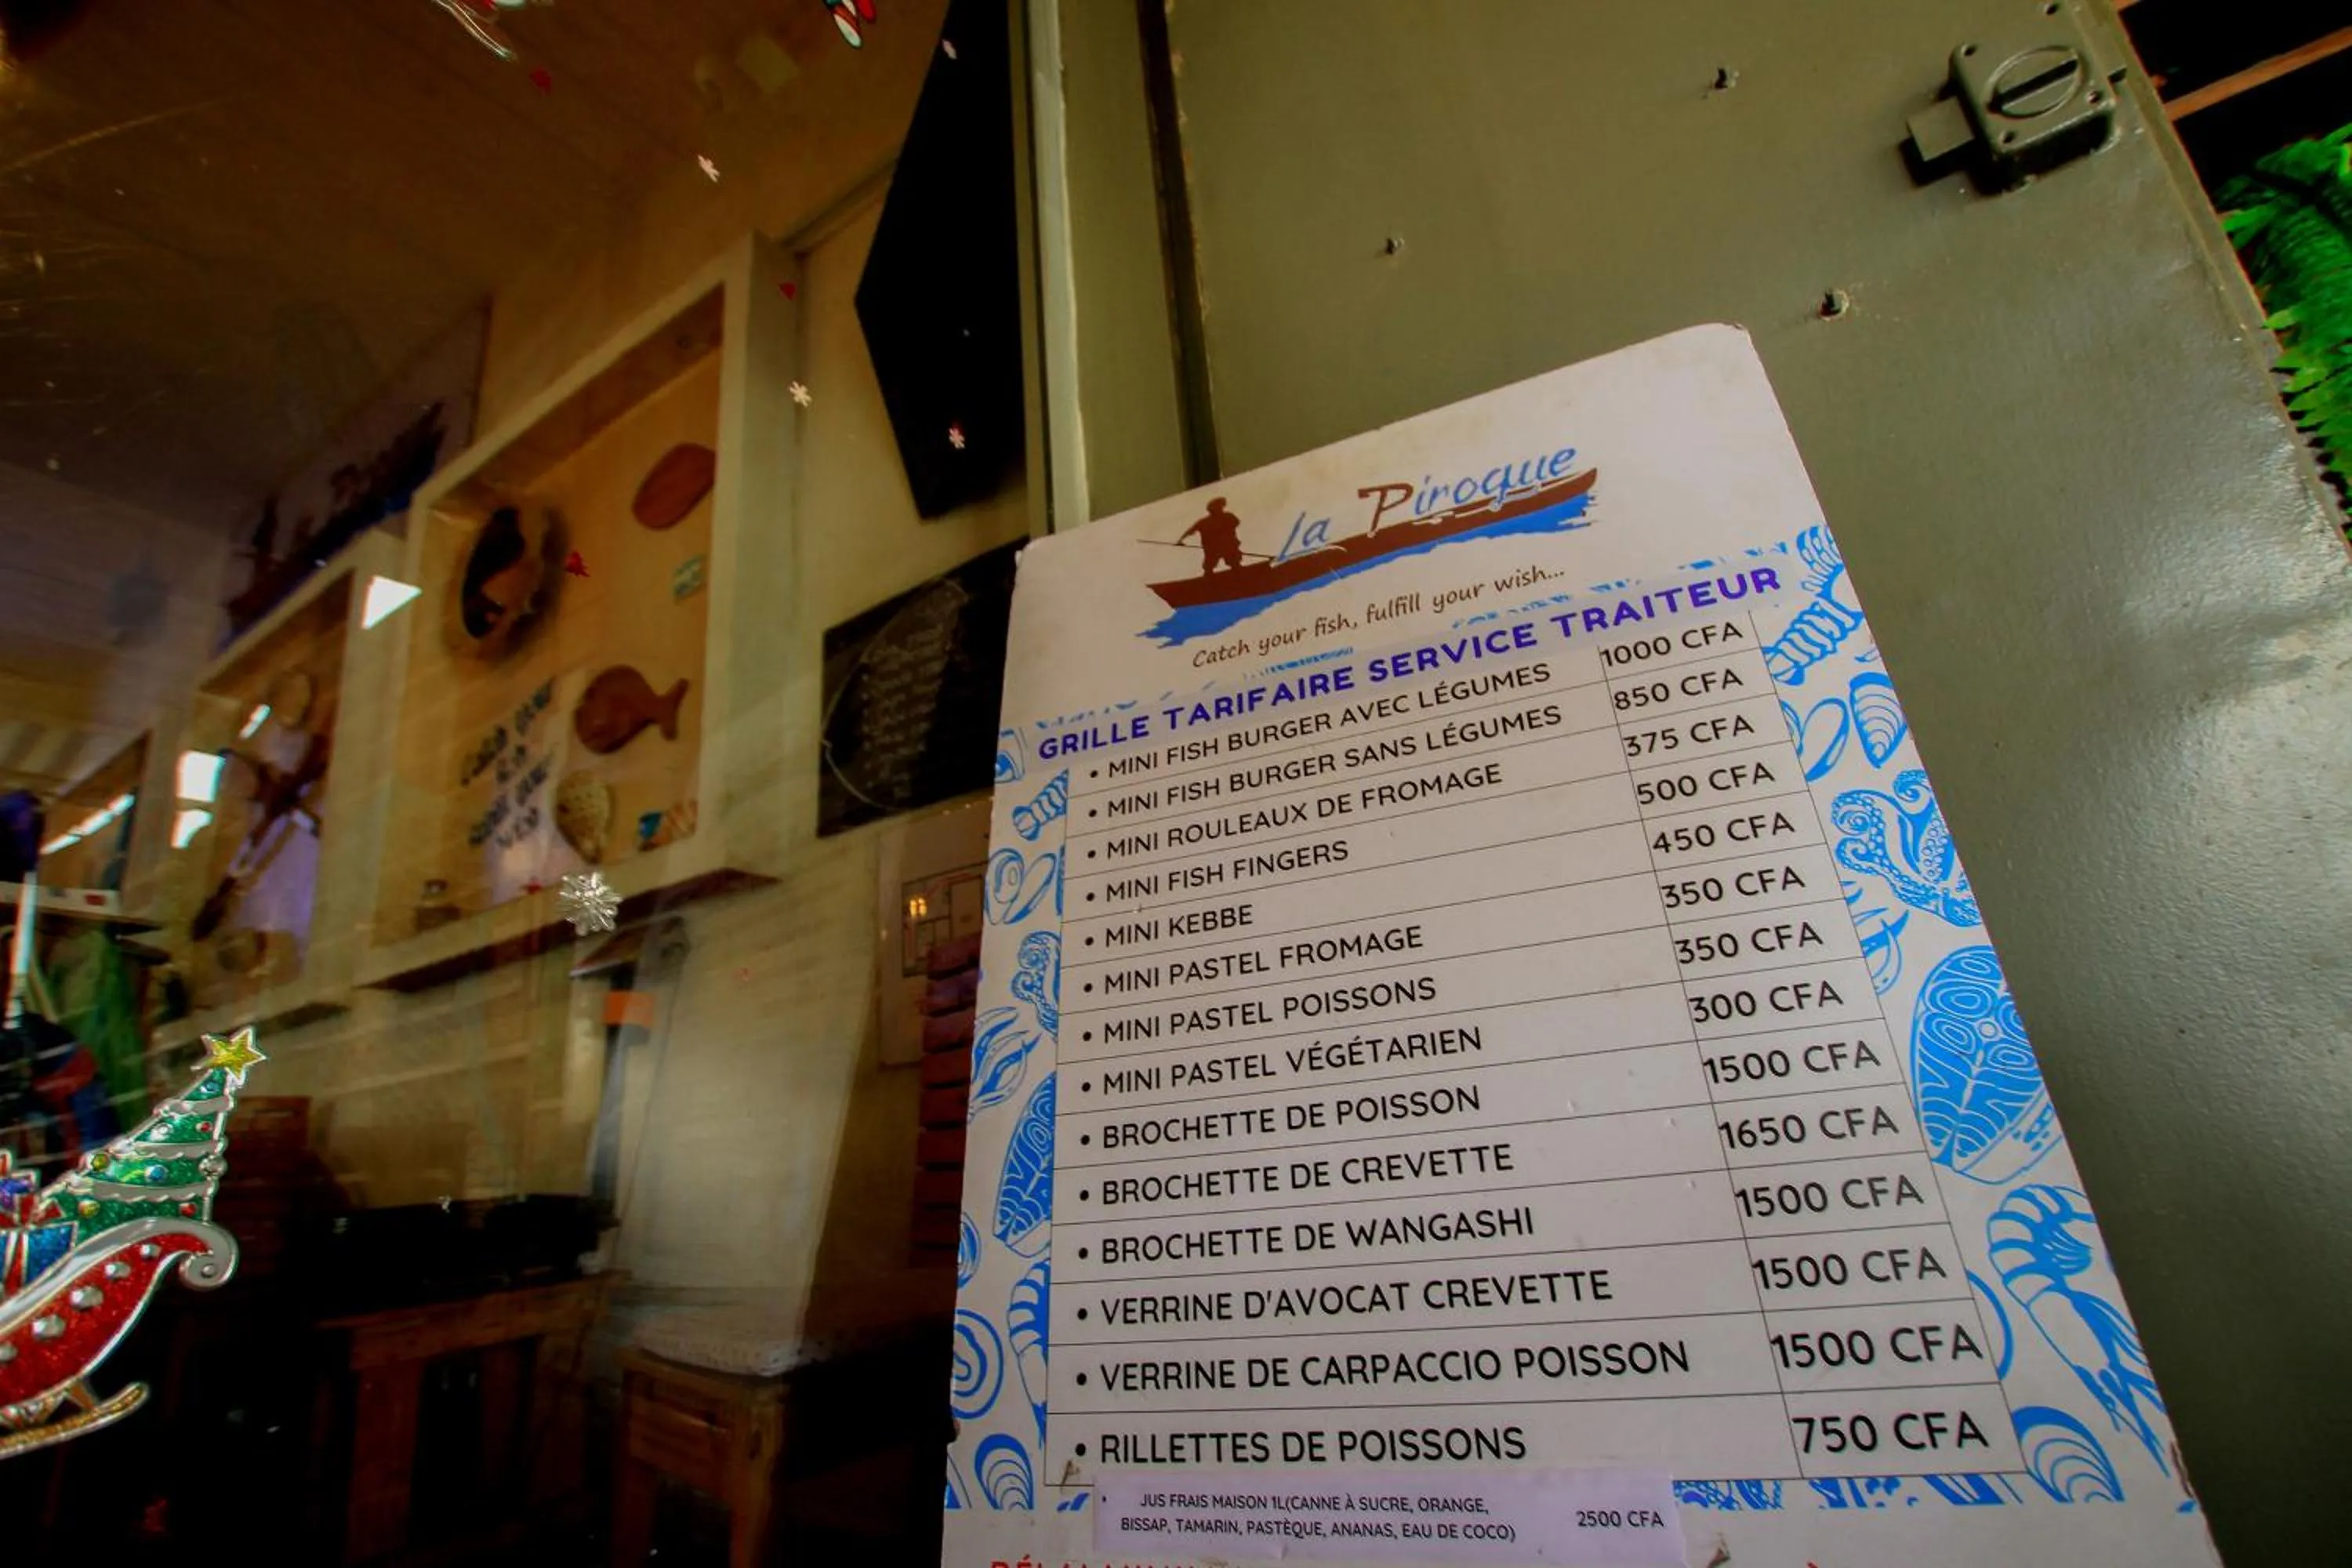 La Piroque
Catch your fish, fulfill your wish...
GRILLE TARIFAIRE SERVICE TRAITEUR
• MINI FISH BURGER AVEC LÉGUMES 1000 CFA
• MINI FISH BURGER SANS LÉGUMES 850 CFA
• MINI ROULEAUX DE FROMAGE 375 CFA
• MINI FISH FINGERS 500 CFA
• MINI KEBBE 450 CFA
• MINI PASTEL FROMAGE 350 CFA
• MINI PASTEL POISSONS 350 CFA
• MINI PASTEL VÉGÉTARIEN 300 CFA
• BROCHETTE DE POISSON 1500 CFA
• BROCHETTE DE CREVETTE 1650 CFA
• BROCHETTE DE WANGASHI 1500 CFA
• VERRINE D'AVOCAT CREVETTE 1500 CFA
• VERRINE DE CARPACCIO POISSON 1500 CFA
• RILLETTES DE POISSONS 750 CFA
• JUS FRAIS MAISON 1L(CANNE À SUCRE, ORANGE,
BISSAP, TAMARIN, PASTÈQUE, ANANAS, EAU DE COCO) 2500 CFA